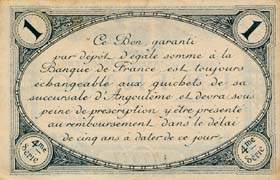 1 1
"Ce Bon garanti
par dépôt d'égale somme à la
Banque de France est toujours
échangeable aux guichets de sa
succursale d'Angoulême et devra sous
peine de prescription y être présenté
au remboursement dans le délai
de cinq ans à dater de ce jour"
4me Série 4me Série